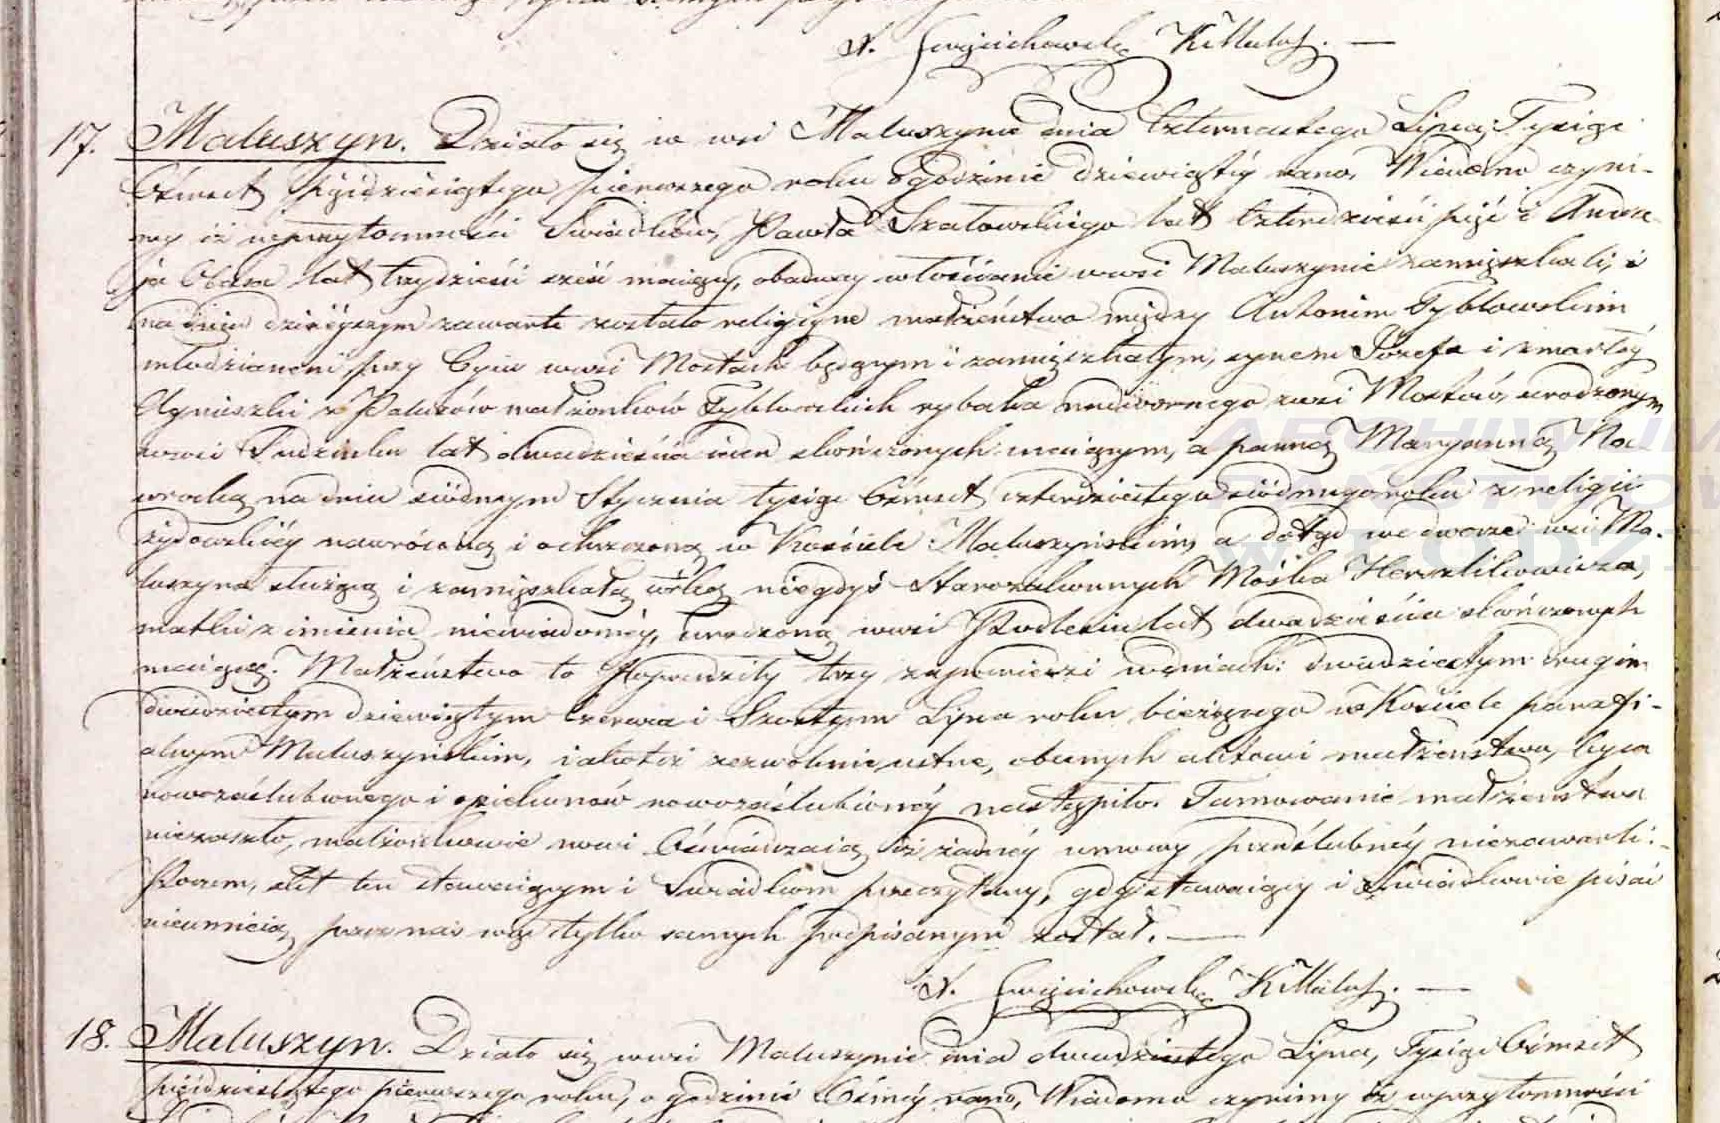 X. Święcichowski K.Malusz. —
17. Maluszyn. Działo się w wsi Maluszynie dnia Czternastego Lipca, Tysiąc
Ośmset pięćdziesiątego pierwszego roku o godzinie dziewiątéy rano. Wiadomo czyni-
my iż w przytomności Świadków, Pawła Szatowskiego lat Czterdzieści pięć i Andrze-
ja lat trzydzieści sześć maiący, obadway włościanie w wsi Maluszynie zamięszkali, i
na dniu dzisieyszym zawarte zostało religiyne małżeństwo między Antonim Tybłowskim
młodzianem przy Oycu w wsi Mostach będącym i zamięszkałym, synem Józefa i zmarłéy
Agnieszki z małżonków Tybłowskich rybaka nadwornego z wsi Mostów, urodzonym
w wsi lat dwadzieścia ieden skończonych maiącym, a panną Maryanną Na
wrocką na dniu siódmym Stycznia tysiąc Ośmset czterdziestego siódmego roku z religii
żydowskiéy nawróconą i ochrzczoną w Kościele Maluszyńskim, a dotąd we dworze wsi Ma-
luszyna służącą i zamięszkałą, córką niegdyś Starozakonnych Mośka Herszlikowicza,
matki z imienia niewiadoméy, urodzoną w wsi Podlesiu lat dwadzieścia skończonych
maiącą. Małżeństwo to poprzedziły trzy zapowiedzi w dniach: dwudziestym drugim
dwudziestym dziewiątym Czerwca i Szóstym Lipca roku bieżącego w Kościele parafi-
alnym Maluszyńskim, iakoteż zezwolenie ustne, obecnych aktowi małżeństwa, Oyca
nowozaślubionego i opiekunów nowozaślubionéy nastąpiło. Tamowanie małżeństwa
nie zaszło, małżonkowie nowi Oświadczaią iż żadnéy umowy przedślubnéy nie zawarli.
Poczem, akt ten stawaiącym i Świadkom przeczytany, gdy stawaiący i Świadkowie pisać
nieumieią przez nas tylko samych podpisanym został. —
X. Święcichowski K.Malusz. —
18. Maluszyn. Działo się w wsi Maluszynie dnia dwudziestego Lipca, Tysiąc Ośmset
pięćdziesiątego pierwszego roku, o godzinie Ósméy rano, Wiadomo czynimy iż w przytomności
ARCHIWUM
PAŃSTWOW
W ŁODZI